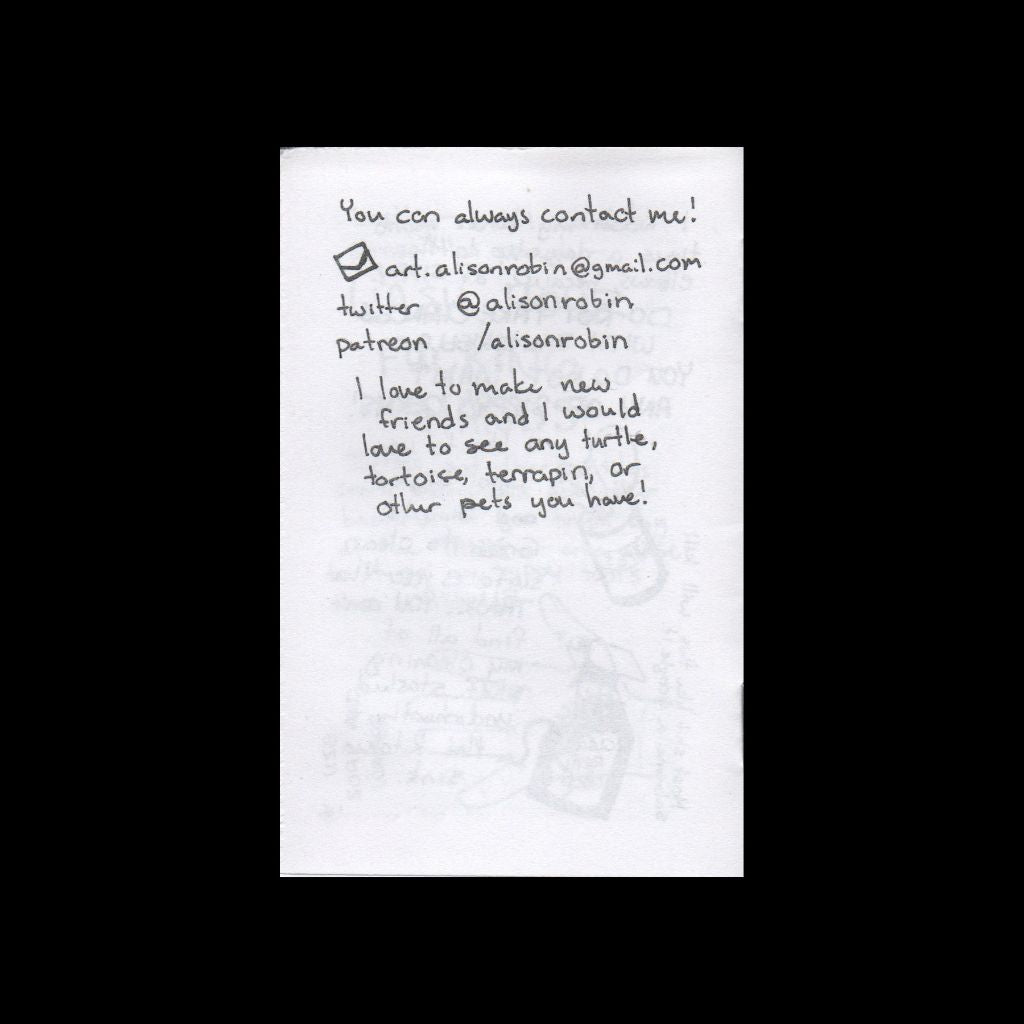 You can always contact me!
art.alisonrobin@gmail.com
twitter @alisonrobin
patreon /alisonrobin
I love to make new
friends and I would
love to see any turtle,
tortoise, terrapin, or
other pets you have!